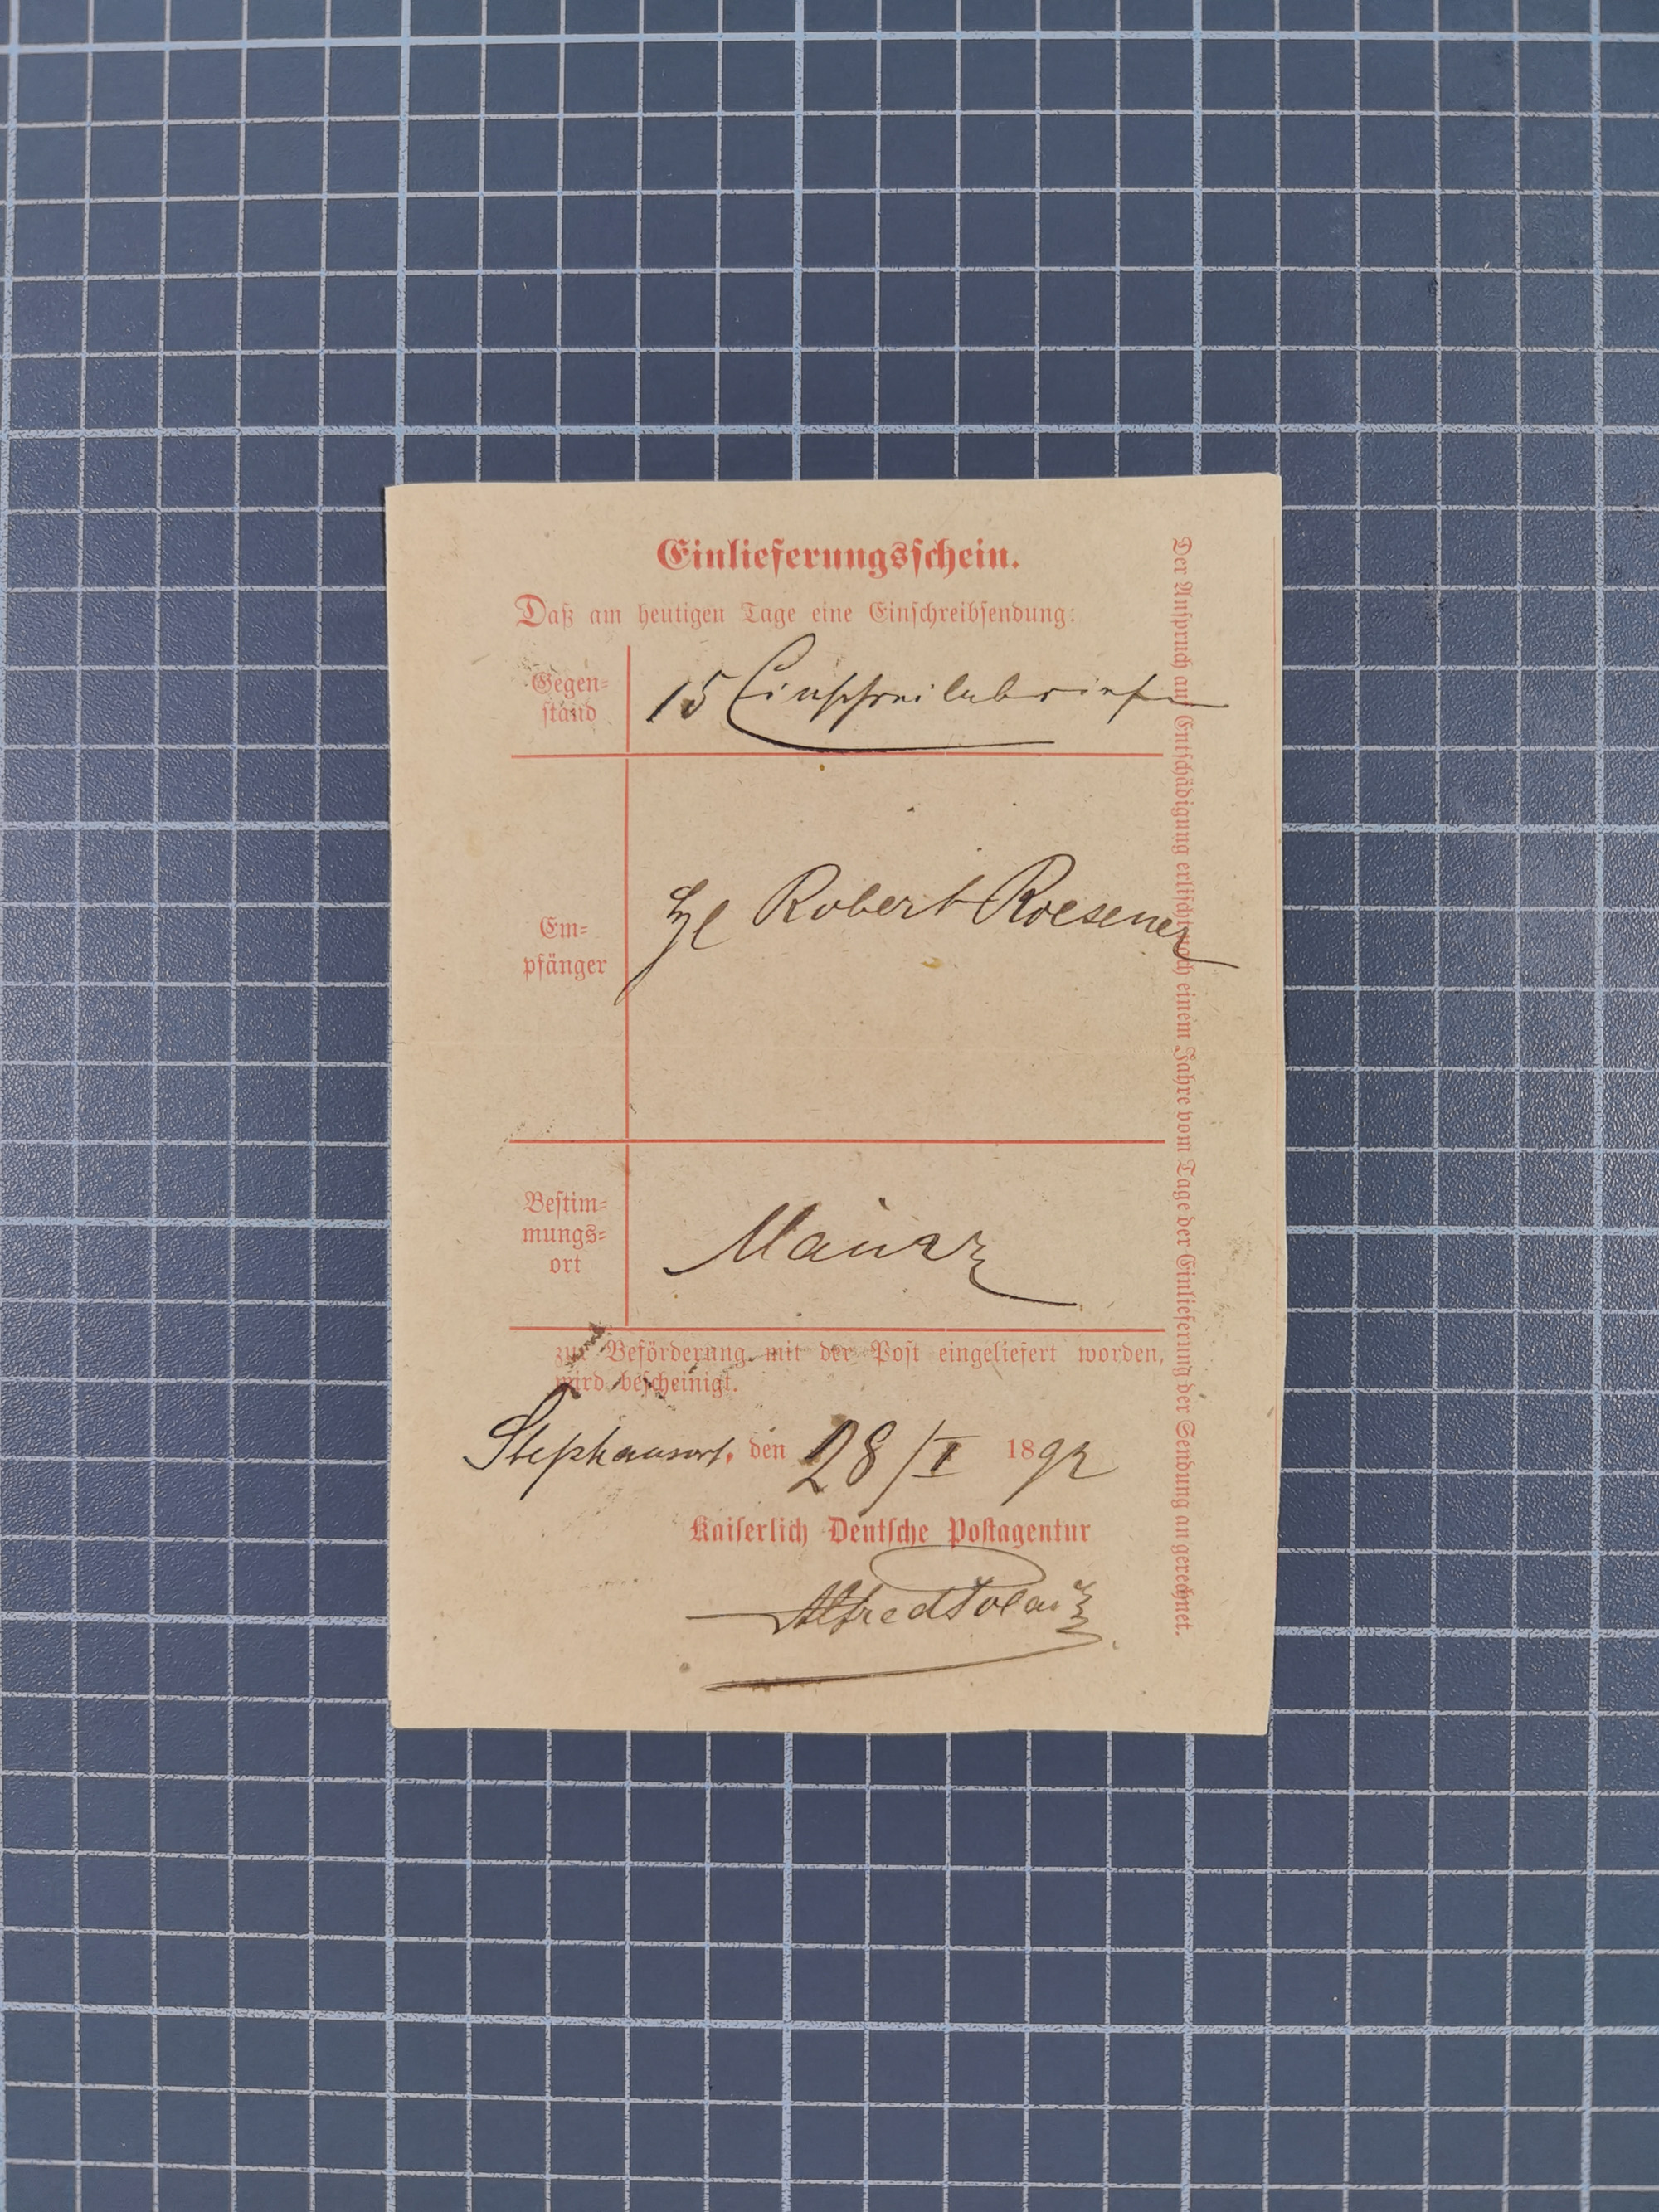 Einlieferungsschein.
Daß am heutigen Tage eine Einschreibsendung:
Gegen=
stand
15 Einschreibebriefe
Em=
pfänger
Robert Roesener
Bestim=
mungs=
ort
Mainz
zur Beförderung mit der Post eingeliefert worden,
wird bescheinigt.
Stephansort, den 28/I 1892
Kaiserlich Deutsche Postagentur
Alfred
Der Anspruch auf Entschädigung erlischt nach einem Jahre vom Tage der Einlieferung der Sendung an gerechnet.